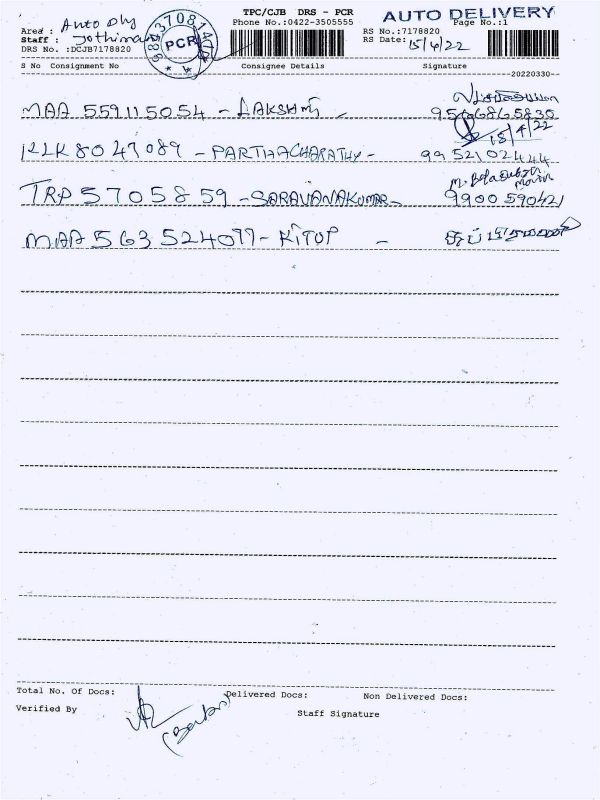 TPC/CJB DRS - PCR
AUTO DELIVERY
Area : Auto Dly
Phone No.:0422-3505555
Page No.:1
Staff : Jothimani
PCR
RS No.:7178820
DRS No. :DCJB7178820
RS Date: 15/4/22
S No Consignment No
Consignee Details
Signature
--20220330--
MAA 559115054 - LAKSHMI -
9566865830
15/4/22
KLK 8047089 - PARTHACHARATHY -
9952102444
TRP 5705859 - SARAVANAKUMAR -
9900590421
MAA 563524099 - KITUP -
Total No. Of Docs:
Delivered Docs:
Non Delivered Docs:
Verified By
Staff Signature